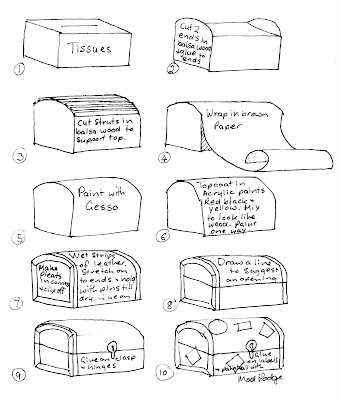 Tissues
1
Cut 2
ends in
balsa wood
& glue to
ends
2
Cut struts in
balsa wood to
support top.
3
Wrap in brown
Paper
4
Paint with
Gesso
5
Topcoat in
Acrylic paints
Red black &
yellow. Mix
to look like
wood. Paint
one way
6
Wet strips
of leather.
Stretch on
to ends & hold
with pins till
dry. Glue on
Make
Pleats
in corners
& clip off
7
Draw a line
to suggest
an opening
8
Glue on clasp
& hinges
9
Glue
on labels
& paint all with
Mod Podge
10